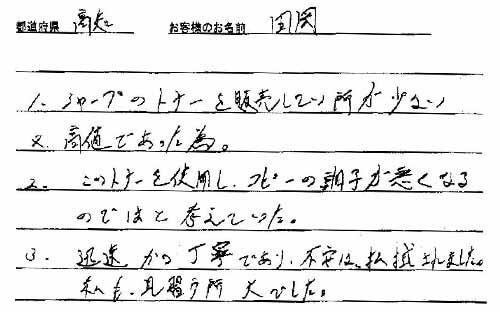 都道府県 高知 お客様のお名前
1. シャープのトナーを販売してい所が少ない
又、高値であった為。
2. このトナーを使用し、コピーの調子が悪くなる
のではと考えていた。
3. 迅速かつ丁寧であり、不安は、払拭されました。
私も、見習う所大でした。